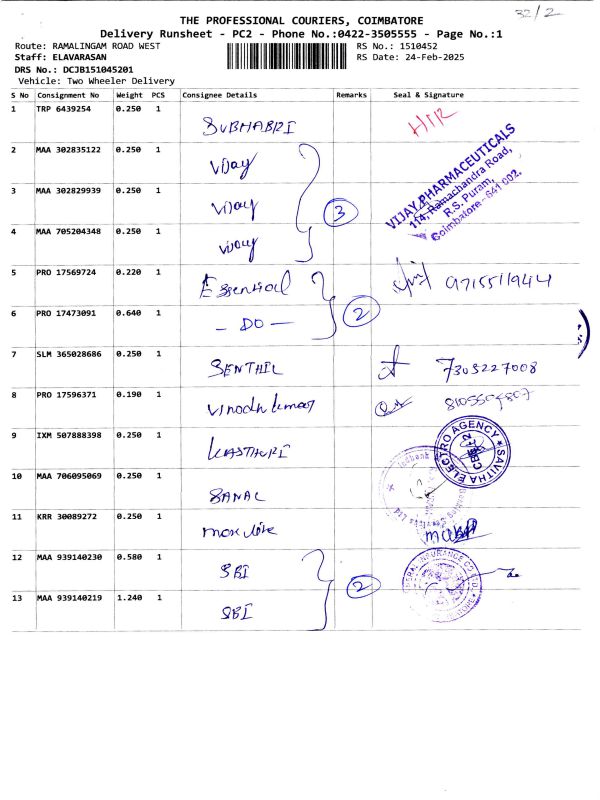 32/2
THE PROFESSIONAL COURIERS, COIMBATORE
Delivery Runsheet - PC2 - Phone No.:0422-3505555 - Page No.:1
Route: RAMALINGAM ROAD WEST RS No.: 1510452
Staff: ELAVARASAN RS Date: 24-Feb-2025
DRS No.: DCJB151045201
Vehicle: Two Wheeler Delivery
S No Consignment No Weight PCS Consignee Details Remarks Seal & Signature
1 TRP 6439254 0.250 1 SUBHABRI
2 MAA 302835122 0.250 1 Vijay
3 MAA 302829939 0.250 1 Vijay 3
4 MAA 705204348 0.250 1 Vijay
VIJAY PHARMACEUTICALS
114, Ramachandra Road,
R.S. Puram,
Coimbatore - 641 002.
5 PRO 17569724 0.220 1 Essential 9715511944
6 PRO 17473091 0.640 1 - DO - 2
7 SLM 365028686 0.250 1 SENTHIL 7305227008
8 PRO 17596371 0.190 1 Vinodh kumar 8105504807
9 IXM 507888398 0.250 1 KASTHURI
SAVITHA ELECTRO AGENCY
CBE-2
10 MAA 706095069 0.250 1 SANAL
11 KRR 30089272 0.250 1
12 MAA 939140230 0.580 1 SBI 2
13 MAA 939140219 1.240 1 SBI